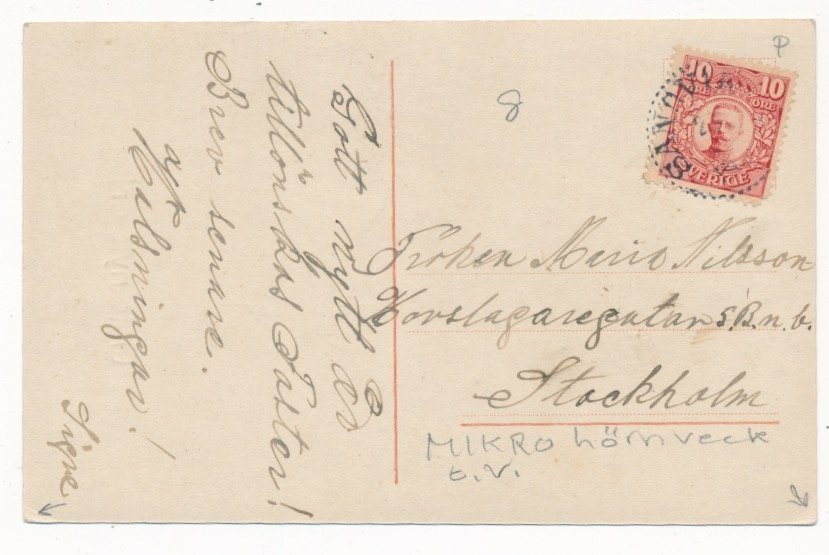 Gott nytt år
tillönskas Faster!
Brev senare.
Hälsningar!
Signe
P
8
10 10
ÖRE
SVERIGE
Fröken Maria Nilsson
Korslagaregatan
Stockholm
MIKRO hörnveck
t.v.